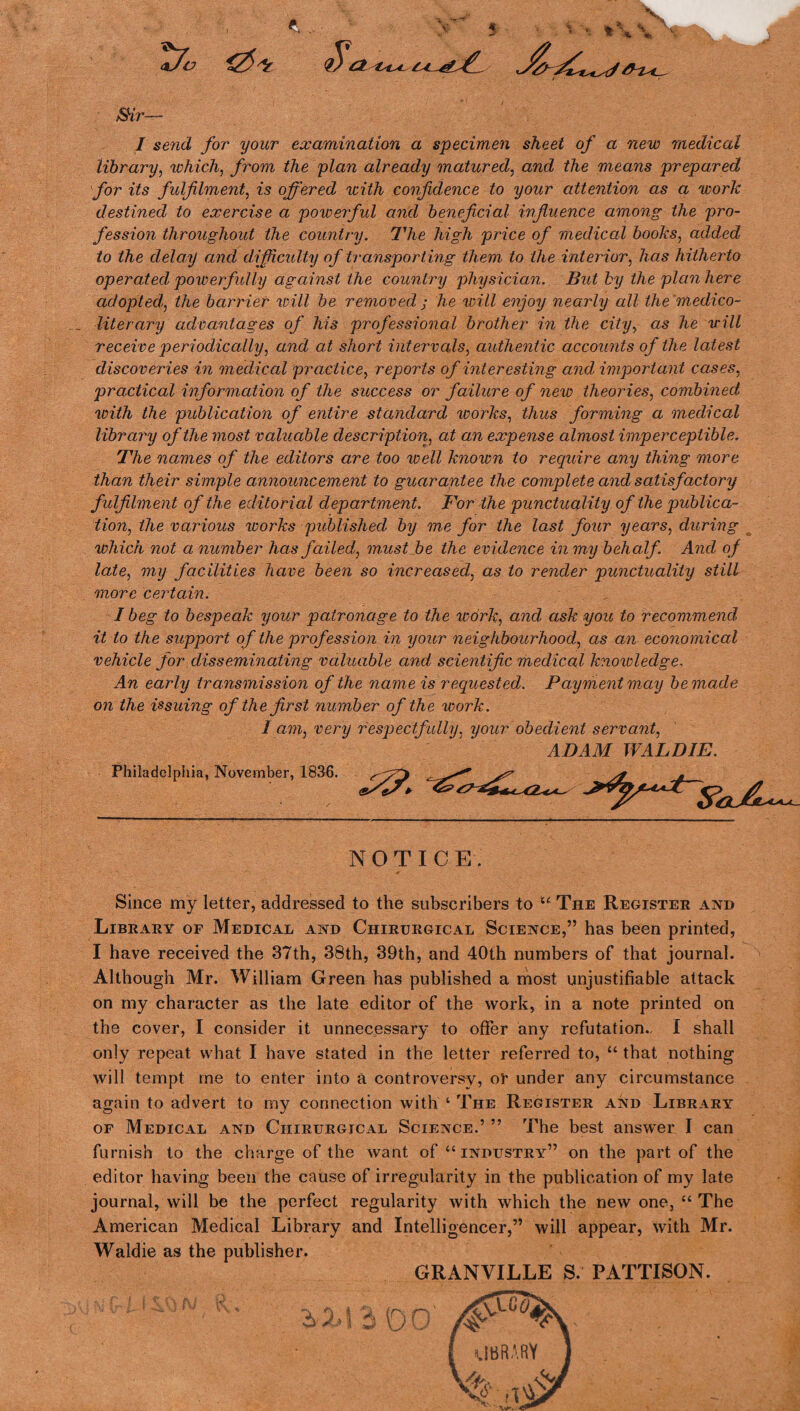 To Dr Samuel Johnson
Sir—
I send for your examination a specimen sheet of a new medical
library, which, from the plan already matured, and the means prepared
for its fulfilment, is offered with confidence to your attention as a work
destined to exercise a powerful and beneficial influence among the pro-
fession throughout the country. The high price of medical books, added
to the delay and difficulty of transporting them to the interior, has hitherto
operated powerfully against the country physician. But by the plan here
adopted, the barrier will be removed; he will enjoy nearly all the medico-
literary advantages of his professional brother in the city, as he will
receive periodically, and at short intervals, authentic accounts of the latest
discoveries in medical practice, reports of interesting and important cases,
practical information of the success or failure of new theories, combined
with the publication of entire standard works, thus forming a medical
library of the most valuable description, at an expense almost imperceptible.
The names of the editors are too well known to require any thing more
than their simple announcement to guarantee the complete and satisfactory
fulfilment of the editorial department. For the punctuality of the publica-
tion, the various works published by me for the last four years, during
which not a number has failed, must be the evidence in my behalf. And of
late, my facilities have been so increased, as to render punctuality still
more certain.
I beg to bespeak your patronage to the work, and ask you to recommend
it to the support of the profession in your neighbourhood, as an economical
vehicle for disseminating valuable and scientific medical knowledge.
An early transmission of the name is requested. Payment may be made
on the issuing of the first number of the work.
I am, very respectfully, your obedient servant,
ADAM WALDIE.
Philadelphia, November, 1836.
NOTICE.
Since my letter, addressed to the subscribers to “The Register and
Library of Medical and Chirurgical Science,” has been printed,
I have received the 37th, 38th, 39th, and 40th numbers of that journal.
Although Mr. William Green has published a most unjustifiable attack
on my character as the late editor of the work, in a note printed on
the cover, I consider it unnecessary to offer any refutation. I shall
only repeat what I have stated in the letter referred to, “that nothing
will tempt me to enter into a controversy, or under any circumstance
again to advert to my connection with ‘The Register and Library
of Medical and Chirurgical Science.’” The best answer I can
furnish to the charge of the want of “industry” on the part of the
editor having been the cause of irregularity in the publication of my late
journal, will be the perfect regularity with which the new one, “The
American Medical Library and Intelligencer,” will appear, with Mr.
Waldie as the publisher.
GRANVILLE S. PATTISON.
DUNGLISON, R.
321300
LIBRARY